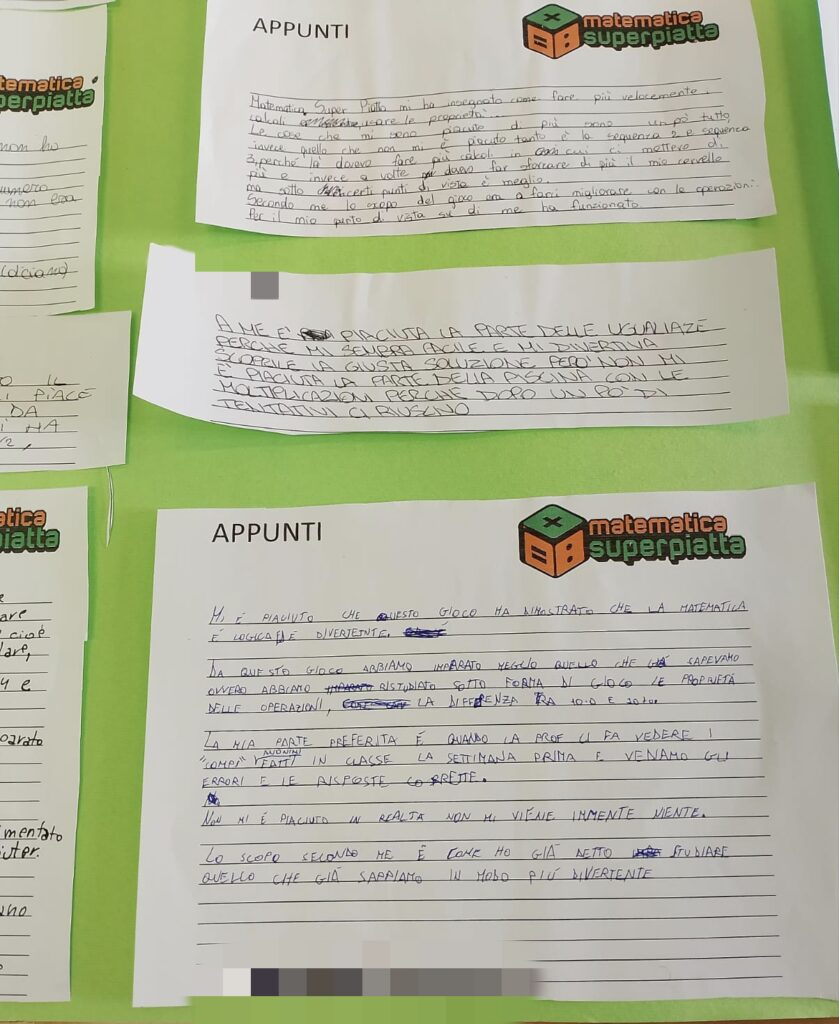 tematica
perpiatta
non ho
numero
non era
(diciamo)
O IL
I PIACE
DA
I HA
atica
iatta
e
are
cioè
lare,
4 e
parato
mentato
uter.
uno
APPUNTI
matematica
superpiatta
Matematica Super Piatta mi ha insegnato come fare più velocemente i
calcoli usare le proprietà...
Le cose che mi sono piaciute di più sono un pò tutto,
invece quello che non mi è piaciuto tanto è la sequenza 2 e sequenza
3, perché là dovevo fare più calcoli in cui ci mettevo di
più e invece a volte davo far sforzare di più il mio cervello
ma sotto certi punti di vista è meglio.
Secondo me lo scopo del gioco era a farci migliorare con le operazioni.
Per il mio punto di vista su di me ha funzionato.
A ME È PIACIUTA LA PARTE DELLE UGUALIAZE
PERCHE MI SEMBRA FACILE E MI DIVERTIVA
SCOPRILE LA GIUSTA SOLUZIONE PERO' NON MI
È PIACIUTA LA PARTE DELLA PISCINA CON LE
MOLTIPLICAZIONI PERCHE DOPO UN PO' DI
TENTATIVI CI RIUSCIVO
APPUNTI
matematica
superpiatta
MI È PIACIUTO CHE QUESTO GIOCO HA DIMOSTRATO CHE LA MATEMATICA
È LOGICA E DIVERTENTE.
DA QUESTO GIOCO ABBIAMO IMPARATO MEGLIO QUELLO CHE GIÀ SAPEVAMO
OVVERO ABBIAMO RISTUDIATO SOTTO FORMA DI GIOCO LE PROPRIETÀ
DELLE OPERAZIONI, LA DIFFERENZA TRA 10:0 E
LA MIA PARTE PREFERITA È QUANDO LA PROF CI FA VEDERE I
"COMPI" ANONIMI FATTI IN CLASSE LA SETTIMANA PRIMA E VENIAMO GLI
ERRORI E LE RISPOSTE CORRETTE.
NON MI È PIACIUTO IN REALTÀ NON MI VIENE IMMENTE NIENTE.
LO SCOPO SECONDO ME È COME HO GIÀ DETTO STUDIARE
QUELLO CHE GIÀ SAPPIAMO IN MODO PIÙ DIVERTENTE